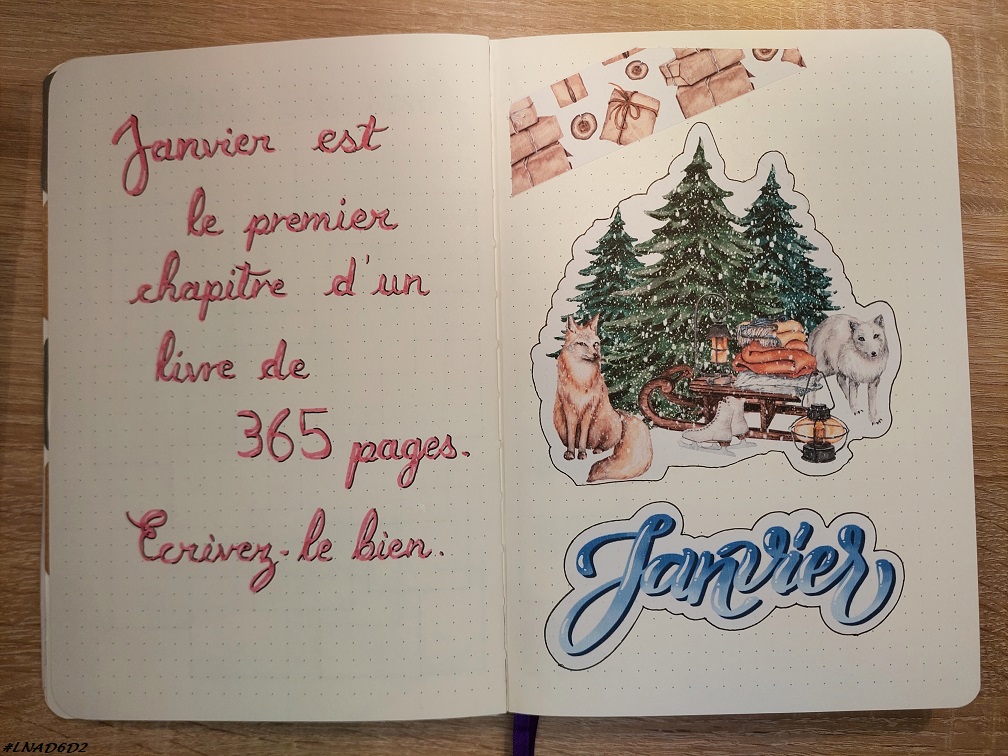 Janvier est
le premier
chapitre d'un
livre de
365 pages.
Ecrivez-le bien.
Janvier
#LNAD6D2